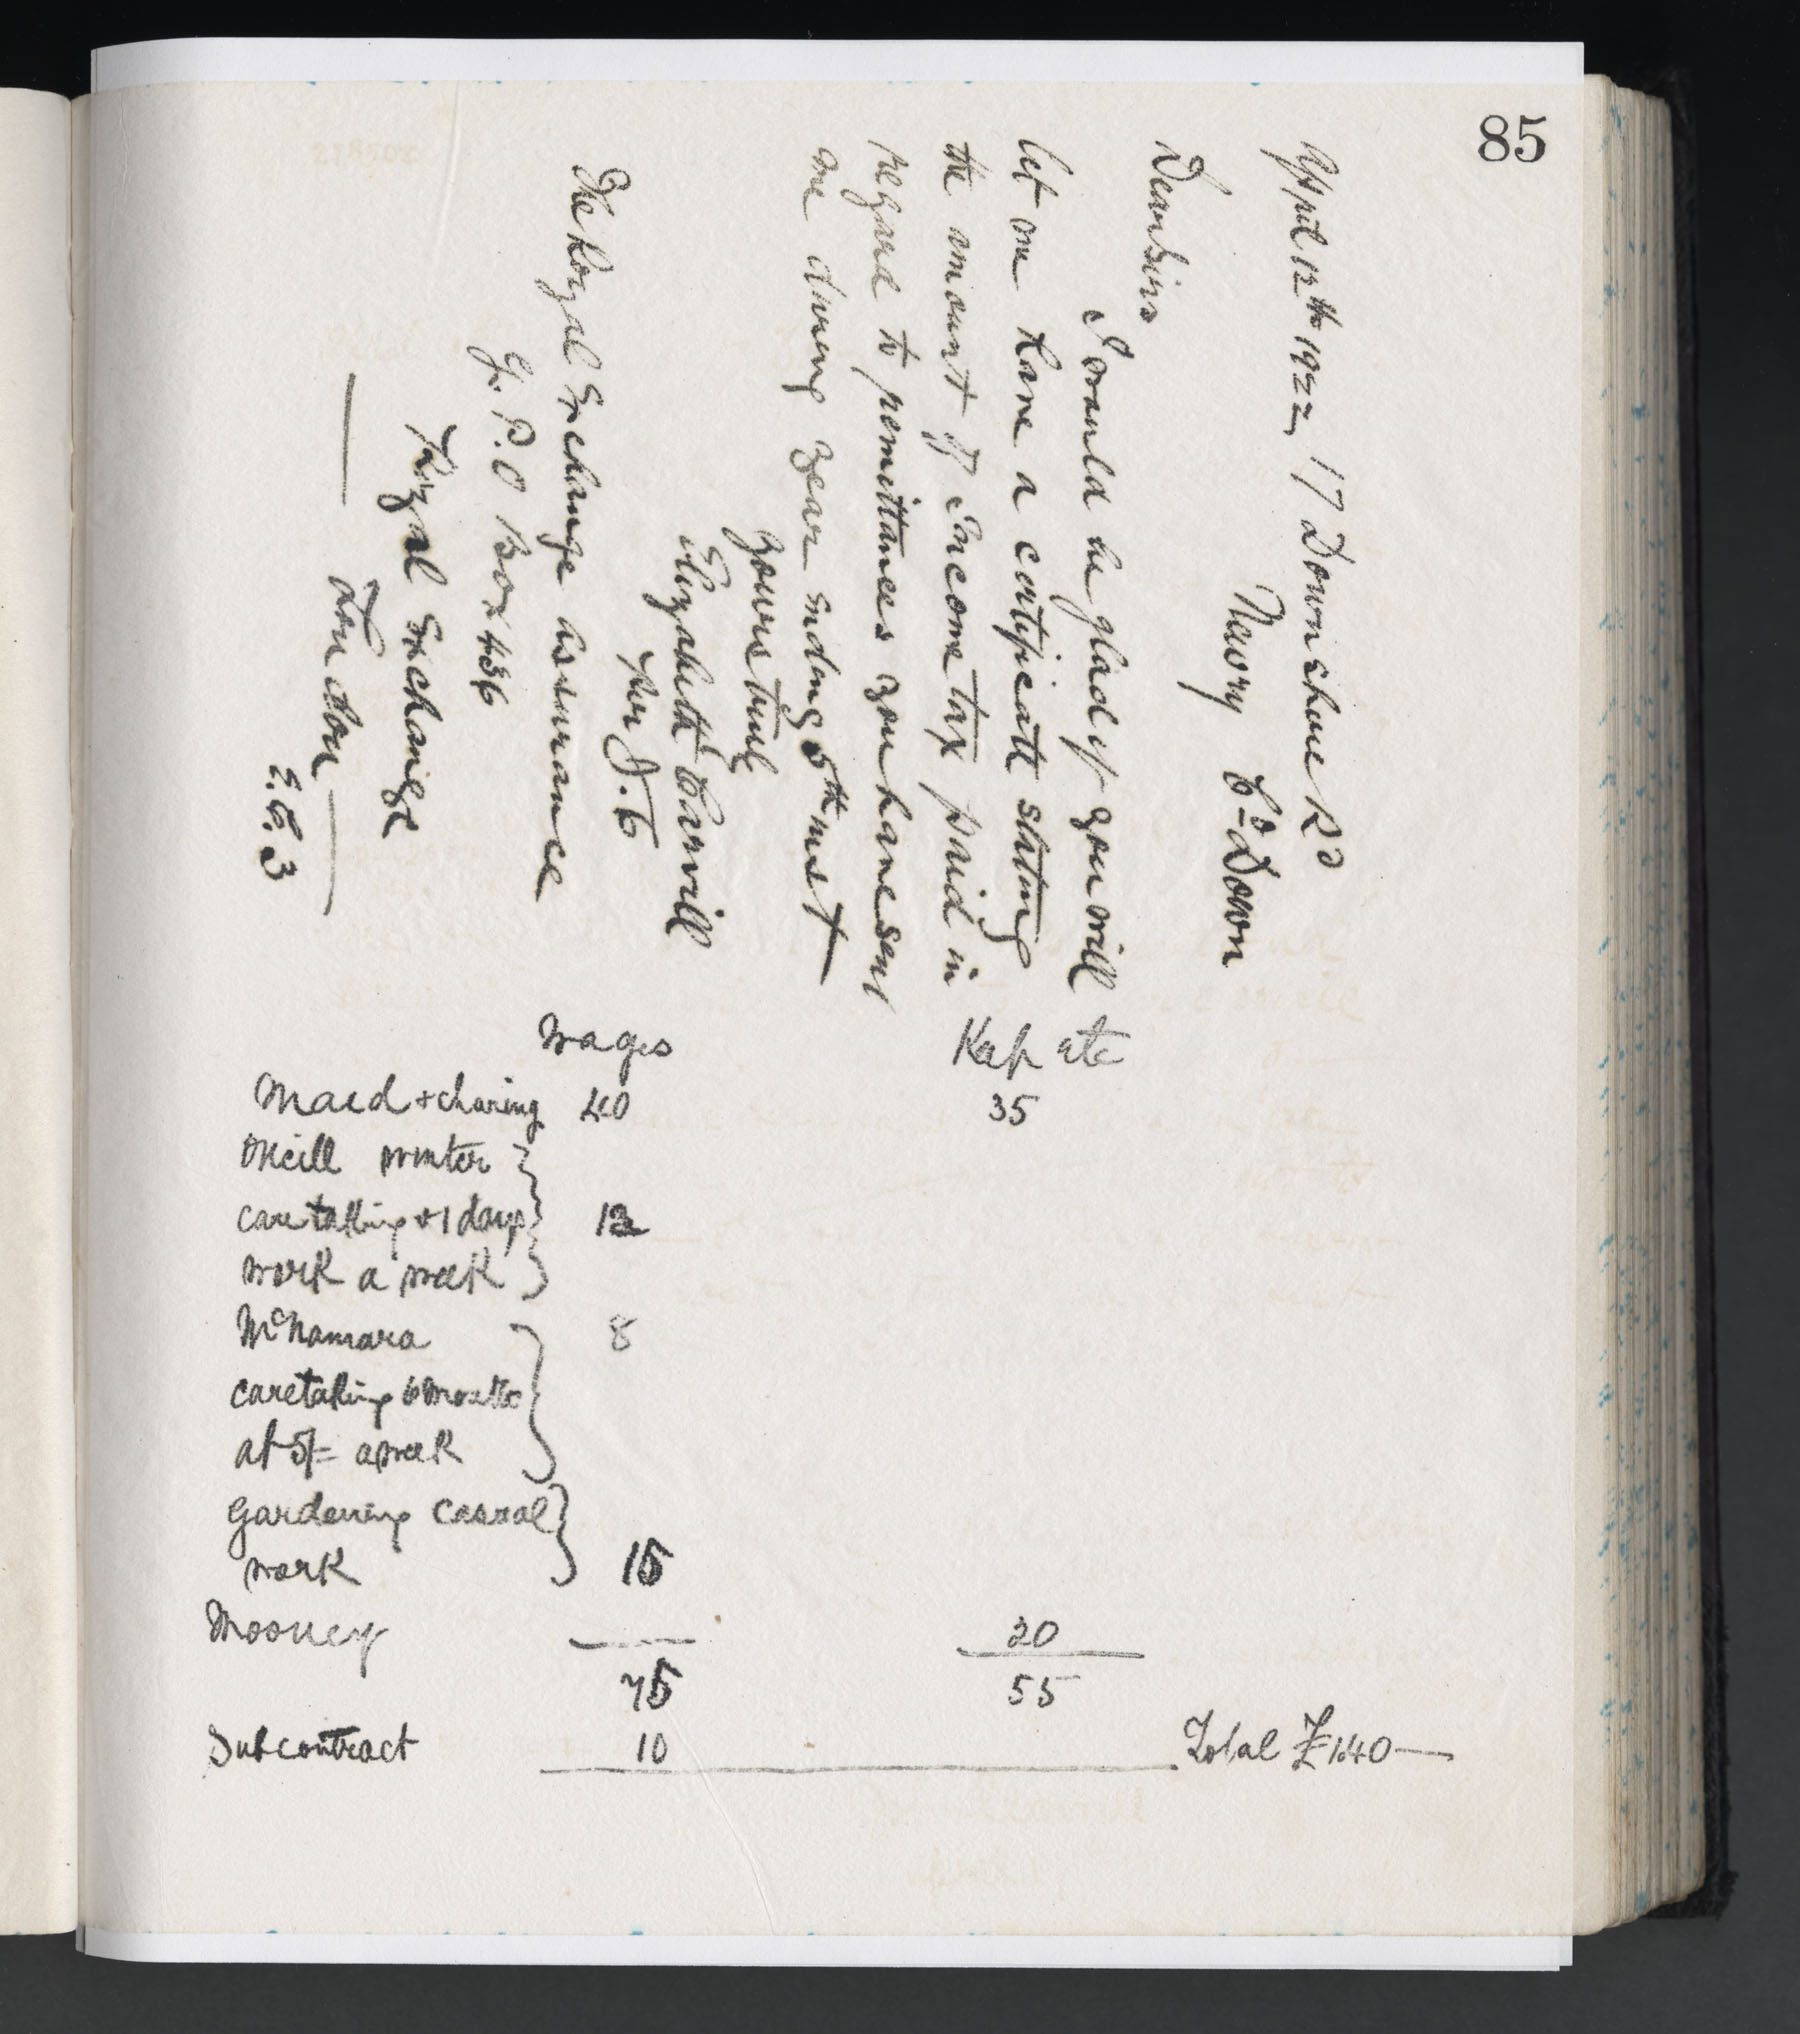 85
April 12th 1922, 17 Downshire Rd
Newry Co Down
Dear Sirs
I would be glad if you will
let me have a certificate stating
the amount of Income tax paid in
regard to remittances you have sent
me during year ending 5th inst
Yours truly
Elizabeth Carvill
Per J.C
The Royal Exchange Assurance
G. P. O Box 436
Royal Exchange
London
E.C.3
Wages Kep etc
Maid + charing 40 35
ONeill winter
caretaking + 1 days 12
work a week
McNamara 8
caretaking 6 months
at 5/= a week
Gardening casual
work 15
Mooney 20
75 55
Subcontract 10 Total £140